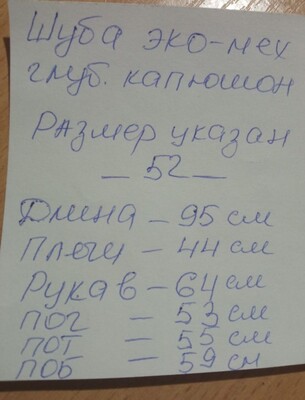 Шуба эко-мех
глуб. капюшон
Размер указан
— 52 —
Длина – 95 см
Плечи – 44 см
Рукав – 64 см
ПОГ – 53 см
ПОТ – 55 см
ПОБ – 59 см